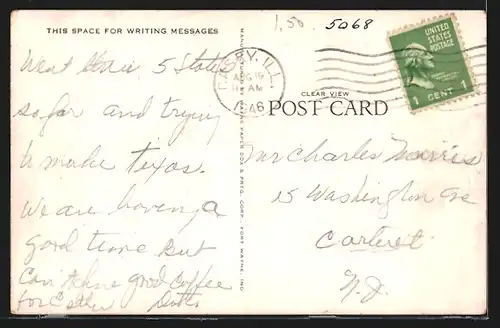 1.50 5068
THIS SPACE FOR WRITING MESSAGES
Went thru 5 States
so far and trying
to make Texas.
We are having a
good time But
Can't have good Coffee
for
MANUFACTURED BY WAYNE PAPER BOX & PRTG. CORP. FORT WAYNE, IND.
ILL.
AUG 19
AM
1946
CLEAR VIEW
POST CARD
UNITED STATES POSTAGE
1 CENT 1
Mr Charles Morris
15 Washington Ave
Carteret
N.J.